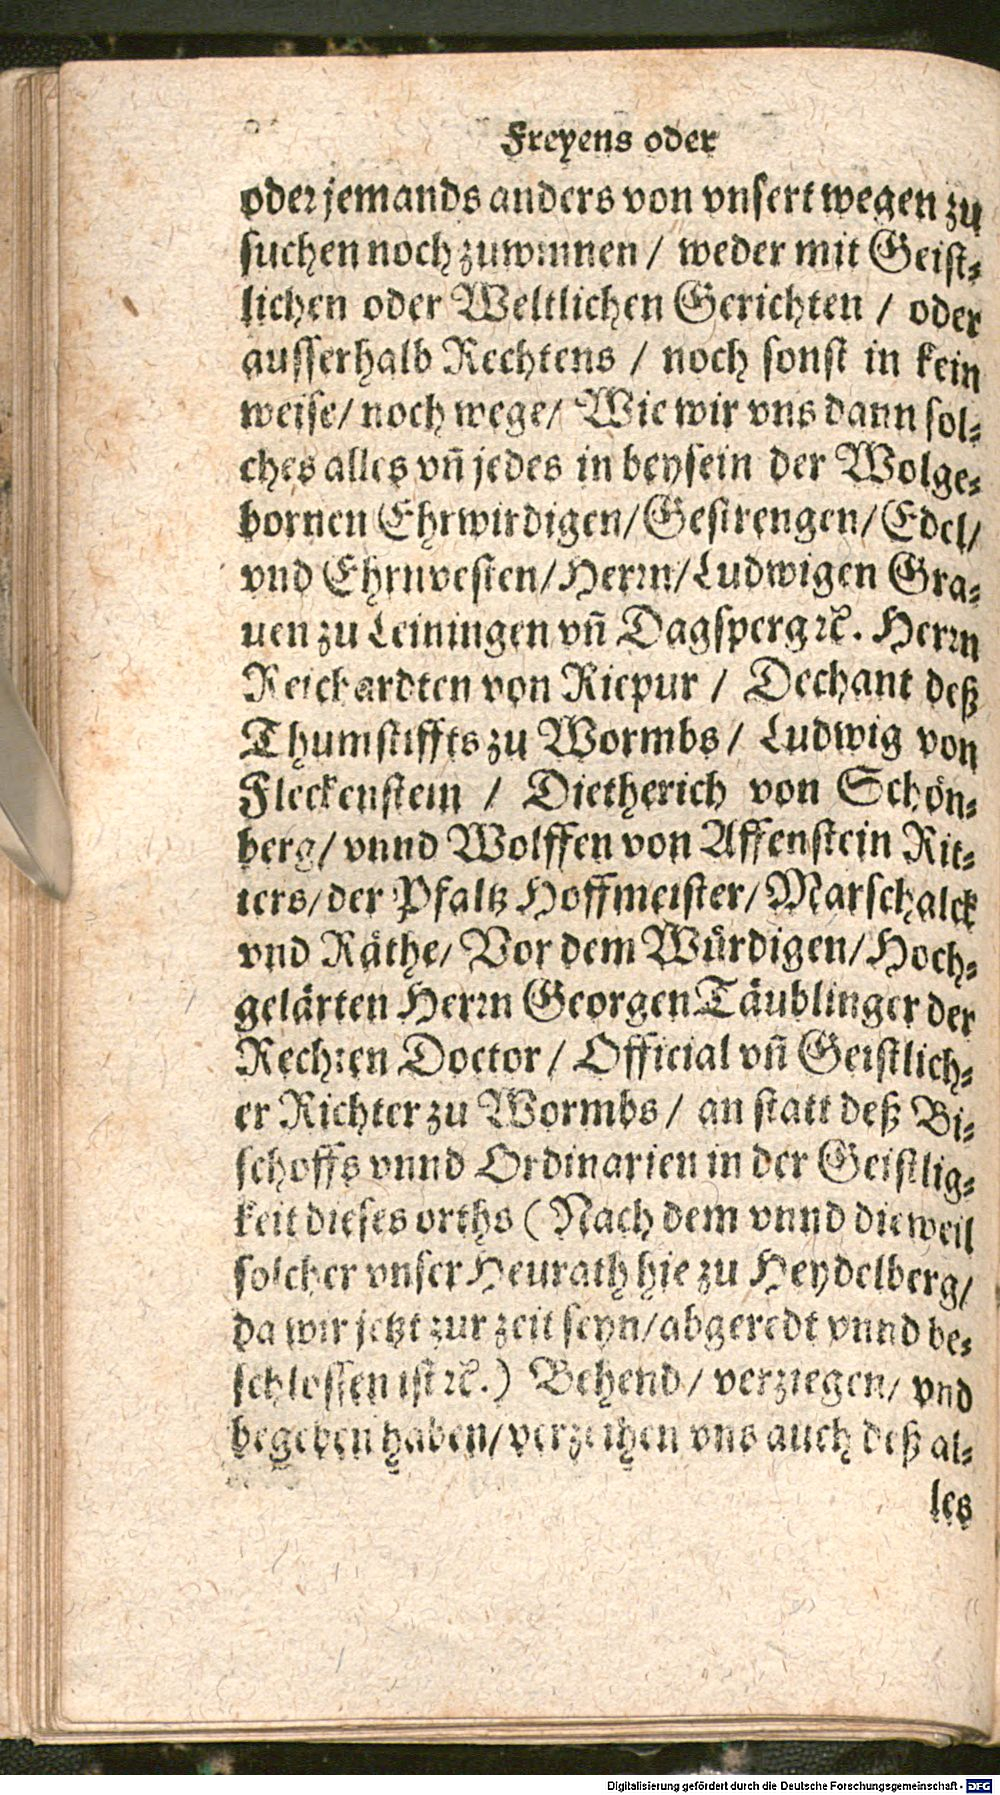 Freyens oder
oder jemands anders von vnsert wegen zu
suchen noch zuwinnen / weder mit Geist-
lichen oder Weltlichen Gerichten / oder
ausserhalb Rechtens / noch sonst in kein
weise/ noch wege/ Wie wir vns dann sol-
ches alles vñ jedes in beysein der Wolge-
bornen Ehrwirdigen/Gestrengen/Edel/
vnd Ehrnvesten/Herrn/Ludwigen Gra-
uen zu Leiningen vñ Dagsperg ꝛc. Herrn
Reickardten von Riepur / Dechant deß
Thumstiffts zu Wormbs / Ludwig von
Fleckenstein / Dietherich von Schön-
berg/ vnnd Wolffen von Affenstein Rit-
ters/der Pfaltz Hoffmeister/Marschalck
vnd Räthe/ Vor dem Würdigen/Hoch-
gelärten Herrn Georgen Täublinger der
Rechten Doctor / Official vñ Geistlich-
er Richter zu Wormbs / an statt deß Bi-
schoffs vnnd Ordinarien in der Geistlig-
keit dieses orths (Nach dem vnnd dieweil
solcher vnser Heurath hie zu Heydelberg/
da wir jetzt zur zeit seyn/abgeredt vnnd be-
schlossen ist ꝛc.) Behend/ verziegen/ vnd
begeben haben/verzeihen vns auch deß al-
les
Digitalisierung gefördert durch die Deutsche Forschungsgemeinschaft - DFG